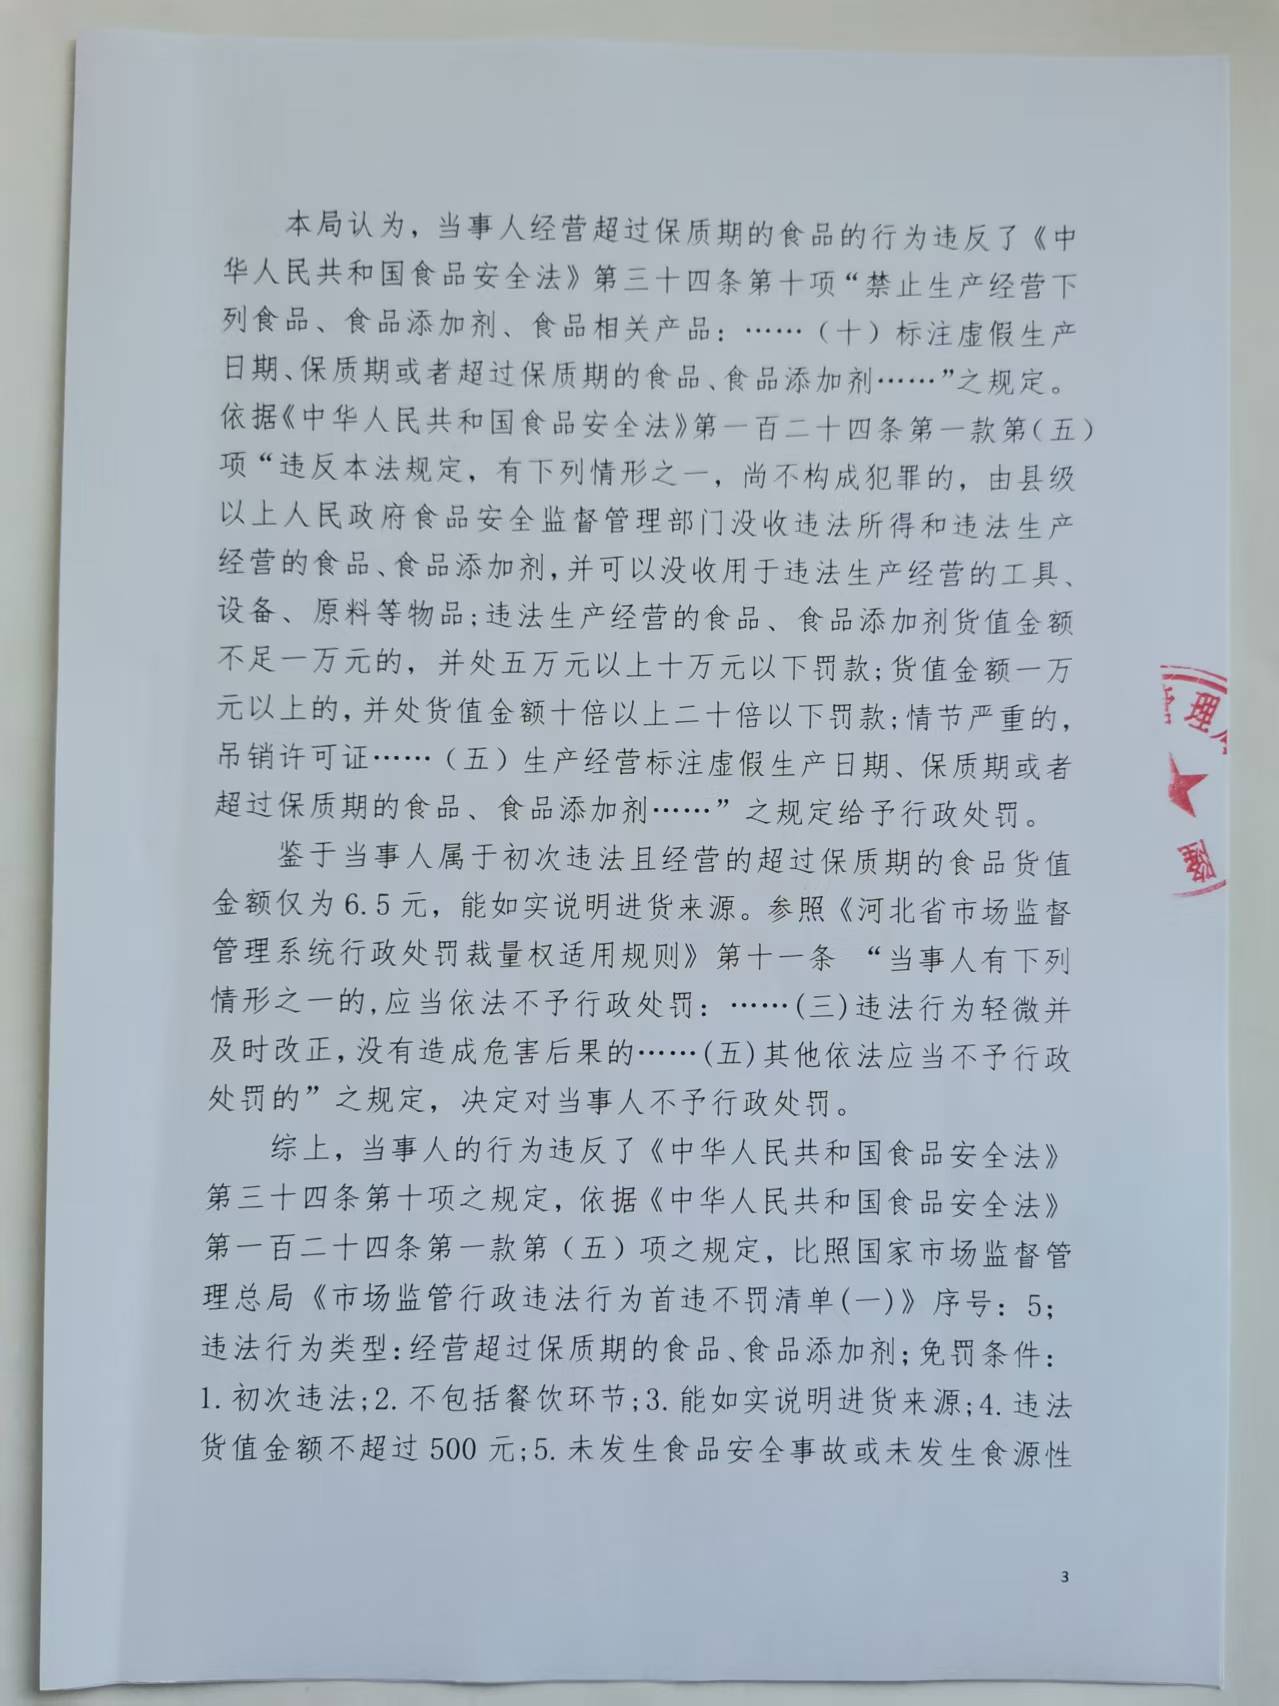 本局认为，当事人经营超过保质期的食品的行为违反了《中
华人民共和国食品安全法》第三十四条第十项“禁止生产经营下
列食品、食品添加剂、食品相关产品：……（十）标注虚假生产
日期、保质期或者超过保质期的食品、食品添加剂……”之规定。
依据《中华人民共和国食品安全法》第一百二十四条第一款第(五)
项“违反本法规定，有下列情形之一，尚不构成犯罪的，由县级
以上人民政府食品安全监督管理部门没收违法所得和违法生产
经营的食品、食品添加剂,并可以没收用于违法生产经营的工具、
设备、原料等物品;违法生产经营的食品、食品添加剂货值金额
不足一万元的，并处五万元以上十万元以下罚款;货值金额一万
元以上的,并处货值金额十倍以上二十倍以下罚款;情节严重的，
吊销许可证……（五）生产经营标注虚假生产日期、保质期或者
超过保质期的食品、食品添加剂……”之规定给予行政处罚。
鉴于当事人属于初次违法且经营的超过保质期的食品货值
金额仅为6.5元，能如实说明进货来源。参照《河北省市场监督
管理系统行政处罚裁量权适用规则》第十一条 “当事人有下列
情形之一的,应当依法不予行政处罚：……(三)违法行为轻微并
及时改正,没有造成危害后果的……(五)其他依法应当不予行政
处罚的”之规定，决定对当事人不予行政处罚。
综上，当事人的行为违反了《中华人民共和国食品安全法》
第三十四条第十项之规定，依据《中华人民共和国食品安全法》
第一百二十四条第一款第（五）项之规定，比照国家市场监督管
理总局《市场监管行政违法行为首违不罚清单(一)》序号：5；
违法行为类型:经营超过保质期的食品、食品添加剂；免罚条件：
1.初次违法;2.不包括餐饮环节;3.能如实说明进货来源;4.违法
货值金额不超过500元;5.未发生食品安全事故或未发生食源性
3
管理局
隆